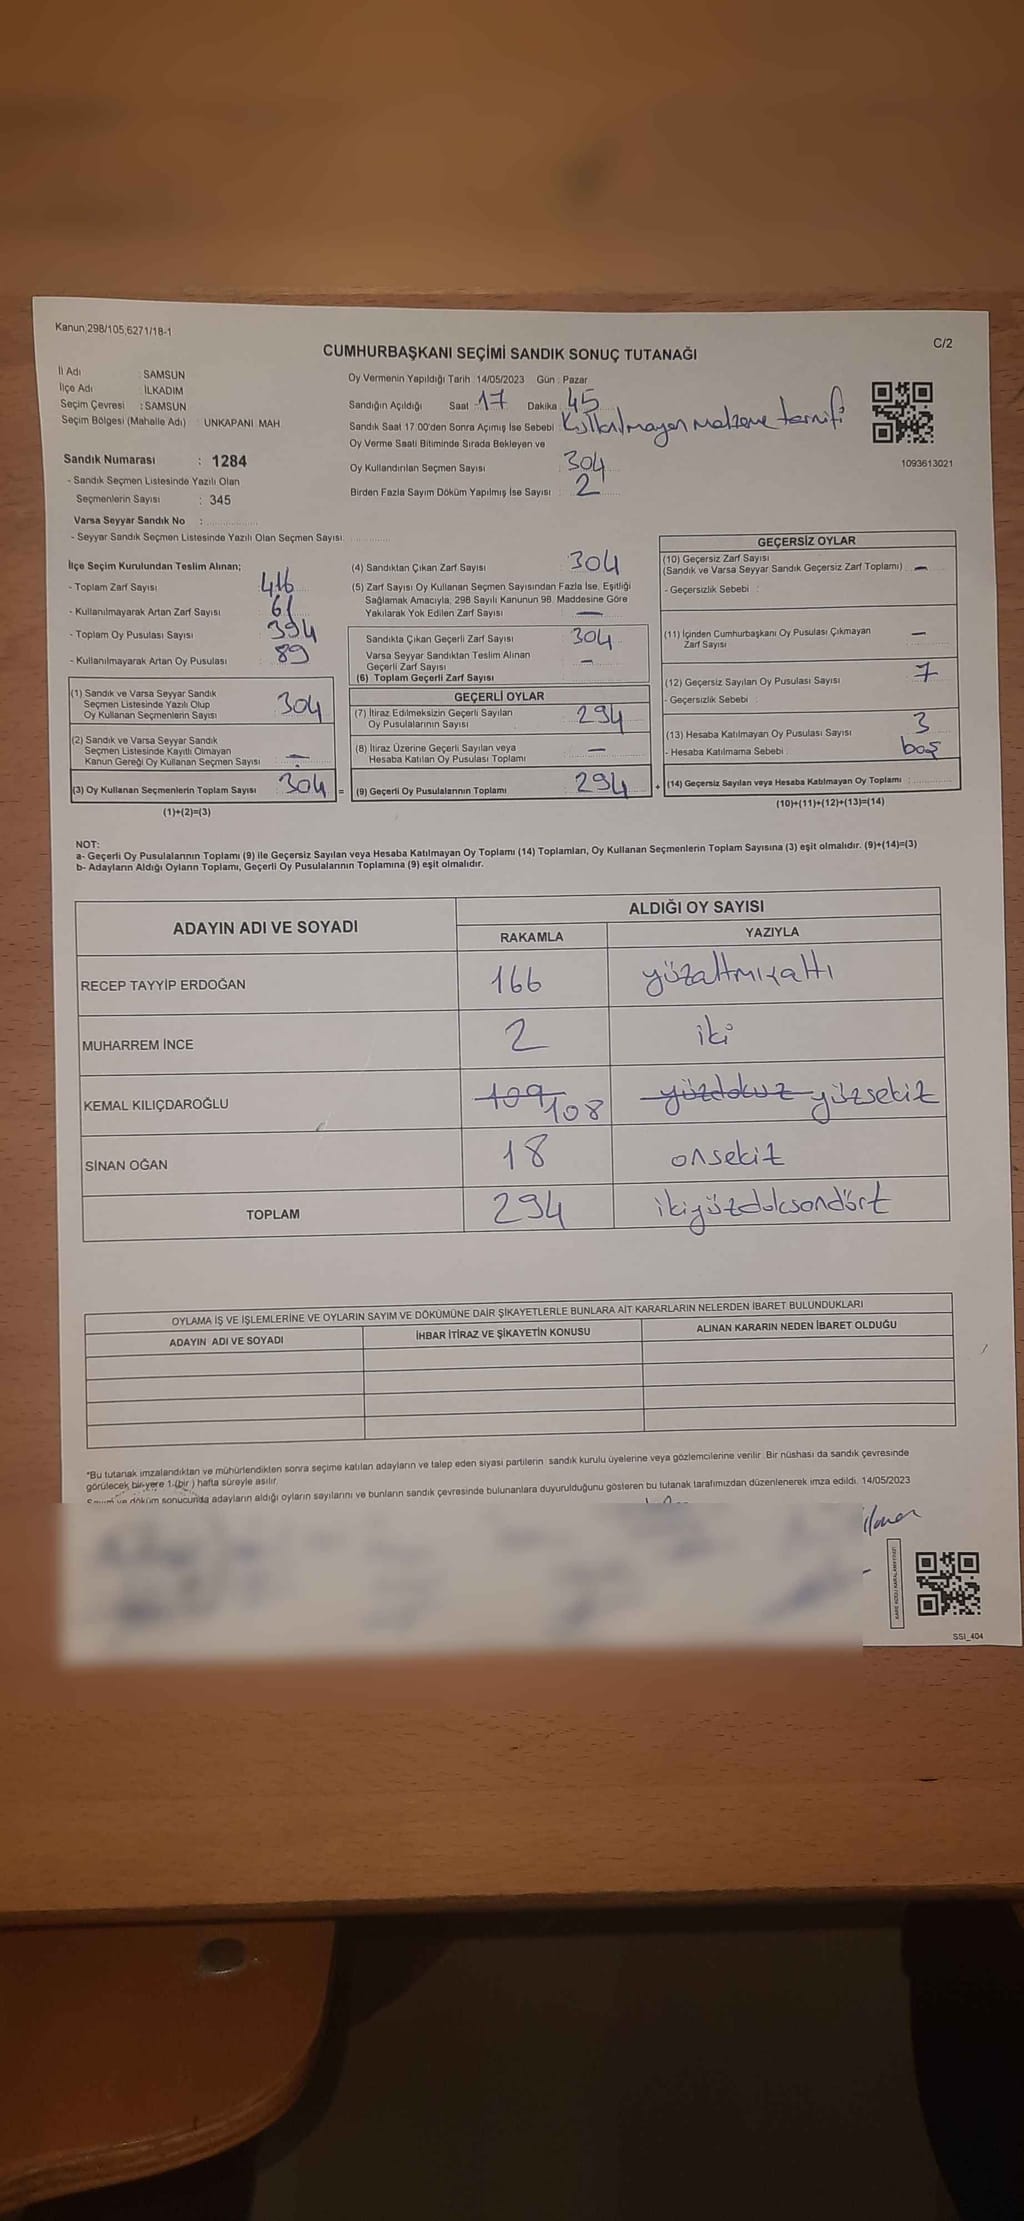 Kanun;298/105,6271/18-1
C/2
CUMHURBAŞKANI SEÇİMİ SANDIK SONUÇ TUTANAĞI
İl Adı : SAMSUN
İlçe Adı : İLKADIM
Seçim Çevresi : SAMSUN
Seçim Bölgesi (Mahalle Adı) : UNKAPANI MAH
Sandık Numarası : 1284
- Sandık Seçmen Listesinde Yazılı Olan
Seçmenlerin Sayısı : 345
Varsa Seyyar Sandık No :
- Seyyar Sandık Seçmen Listesinde Yazılı Olan Seçmen Sayısı:
Oy Vermenin Yapıldığı Tarih : 14/05/2023 Gün : Pazar
Sandığın Açıldığı Saat : 17 Dakika : 45
Sandık Saat 17.00'den Sonra Açımış İse Sebebi : Kullanılmayan malzeme
Oy Verme Saati Bitiminde Sırada Bekleyen ve
Oy Kullandırılan Seçmen Sayısı : 304
Birden Fazla Sayım Döküm Yapılmış İse Sayısı : 2
1093613021
İlçe Seçim Kurulundan Teslim Alınan;
- Toplam Zarf Sayısı : 416
- Kullanılmayarak Artan Zarf Sayısı : 61
- Toplam Oy Pusulası Sayısı : 394
- Kullanılmayarak Artan Oy Pusulası : 89
(1) Sandık ve Varsa Seyyar Sandık
Seçmen Listesinde Yazılı Olup
Oy Kullanan Seçmenlerin Sayısı : 304
(2) Sandık ve Varsa Seyyar Sandık
Seçmen Listesinde Kayıtlı Olmayan
Kanun Gereği Oy Kullanan Seçmen Sayısı : —
(3) Oy Kullanan Seçmenlerin Toplam Sayısı : 304 =
(1)+(2)=(3)
(4) Sandıktan Çıkan Zarf Sayısı : 304
(5) Zarf Sayısı Oy Kullanan Seçmen Sayısından Fazla İse, Eşitliği
Sağlamak Amacıyla, 298 Sayılı Kanunun 98. Maddesine Göre
Yakılarak Yok Edilen Zarf Sayısı : —
Sandıkta Çıkan Geçerli Zarf Sayısı : 304
Varsa Seyyar Sandıktan Teslim Alınan
Geçerli Zarf Sayısı : —
(6) Toplam Geçerli Zarf Sayısı
GEÇERLİ OYLAR
(7) İtiraz Edilmeksizin Geçerli Sayılan
Oy Pusulalarının Sayısı : 294
(8) İtiraz Üzerine Geçerli Sayılan veya
Hesaba Katılan Oy Pusulası Toplamı : —
(9) Geçerli Oy Pusulalarının Toplamı : 294 +
GEÇERSİZ OYLAR
(10) Geçersiz Zarf Sayısı
(Sandık ve Varsa Seyyar Sandık Geçersiz Zarf Toplamı) : —
- Geçersizlik Sebebi :
(11) İçinden Cumhurbaşkanı Oy Pusulası Çıkmayan
Zarf Sayısı : —
(12) Geçersiz Sayılan Oy Pusulası Sayısı : 7
- Geçersizlik Sebebi :
(13) Hesaba Katılmayan Oy Pusulası Sayısı : 3
- Hesaba Katılmama Sebebi : boş
(14) Geçersiz Sayılan veya Hesaba Katılmayan Oy Toplamı :
(10)+(11)+(12)+(13)=(14)
NOT:
a- Geçerli Oy Pusulalarının Toplamı (9) ile Geçersiz Sayılan veya Hesaba Katılmayan Oy Toplamı (14) Toplamları, Oy Kullanan Seçmenlerin Toplam Sayısına (3) eşit olmalıdır. (9)+(14)=(3)
b- Adayların Aldığı Oyların Toplamı, Geçerli Oy Pusulalarının Toplamına (9) eşit olmalıdır.
ADAYIN ADI VE SOYADI
ALDIĞI OY SAYISI
RAKAMLA YAZIYLA
RECEP TAYYİP ERDOĞAN 166 yüzaltmışaltı
MUHARREM İNCE 2 iki
KEMAL KILIÇDAROĞLU 109 108 yüzdokuz yüzsekiz
SİNAN OĞAN 18 onsekiz
TOPLAM 294 ikiyüzdoksandört
OYLAMA İŞ VE İŞLEMLERİNE VE OYLARIN SAYIM VE DÖKÜMÜNE DAİR ŞİKAYETLERLE BUNLARA AİT KARARLARIN NELERDEN İBARET BULUNDUKLARI
ADAYIN ADI VE SOYADI İHBAR İTİRAZ VE ŞİKAYETİN KONUSU ALINAN KARARIN NEDEN İBARET OLDUĞU
*Bu tutanak imzalandıktan ve mühürlendikten sonra seçime katılan adayların ve talep eden siyasi partilerin sandık kurulu üyelerine veya gözlemcilerine verilir. Bir nüshası da sandık çevresinde
görülecek bir yere 1 (bir) hafta süreyle asılır.
Sayım ve döküm sonucunda adayların aldığı oyların sayılarını ve bunların sandık çevresinde bulunanlara duyurulduğunu gösteren bu tutanak tarafımızdan düzenlenerek imza edildi. 14/05/2023
SSI_404